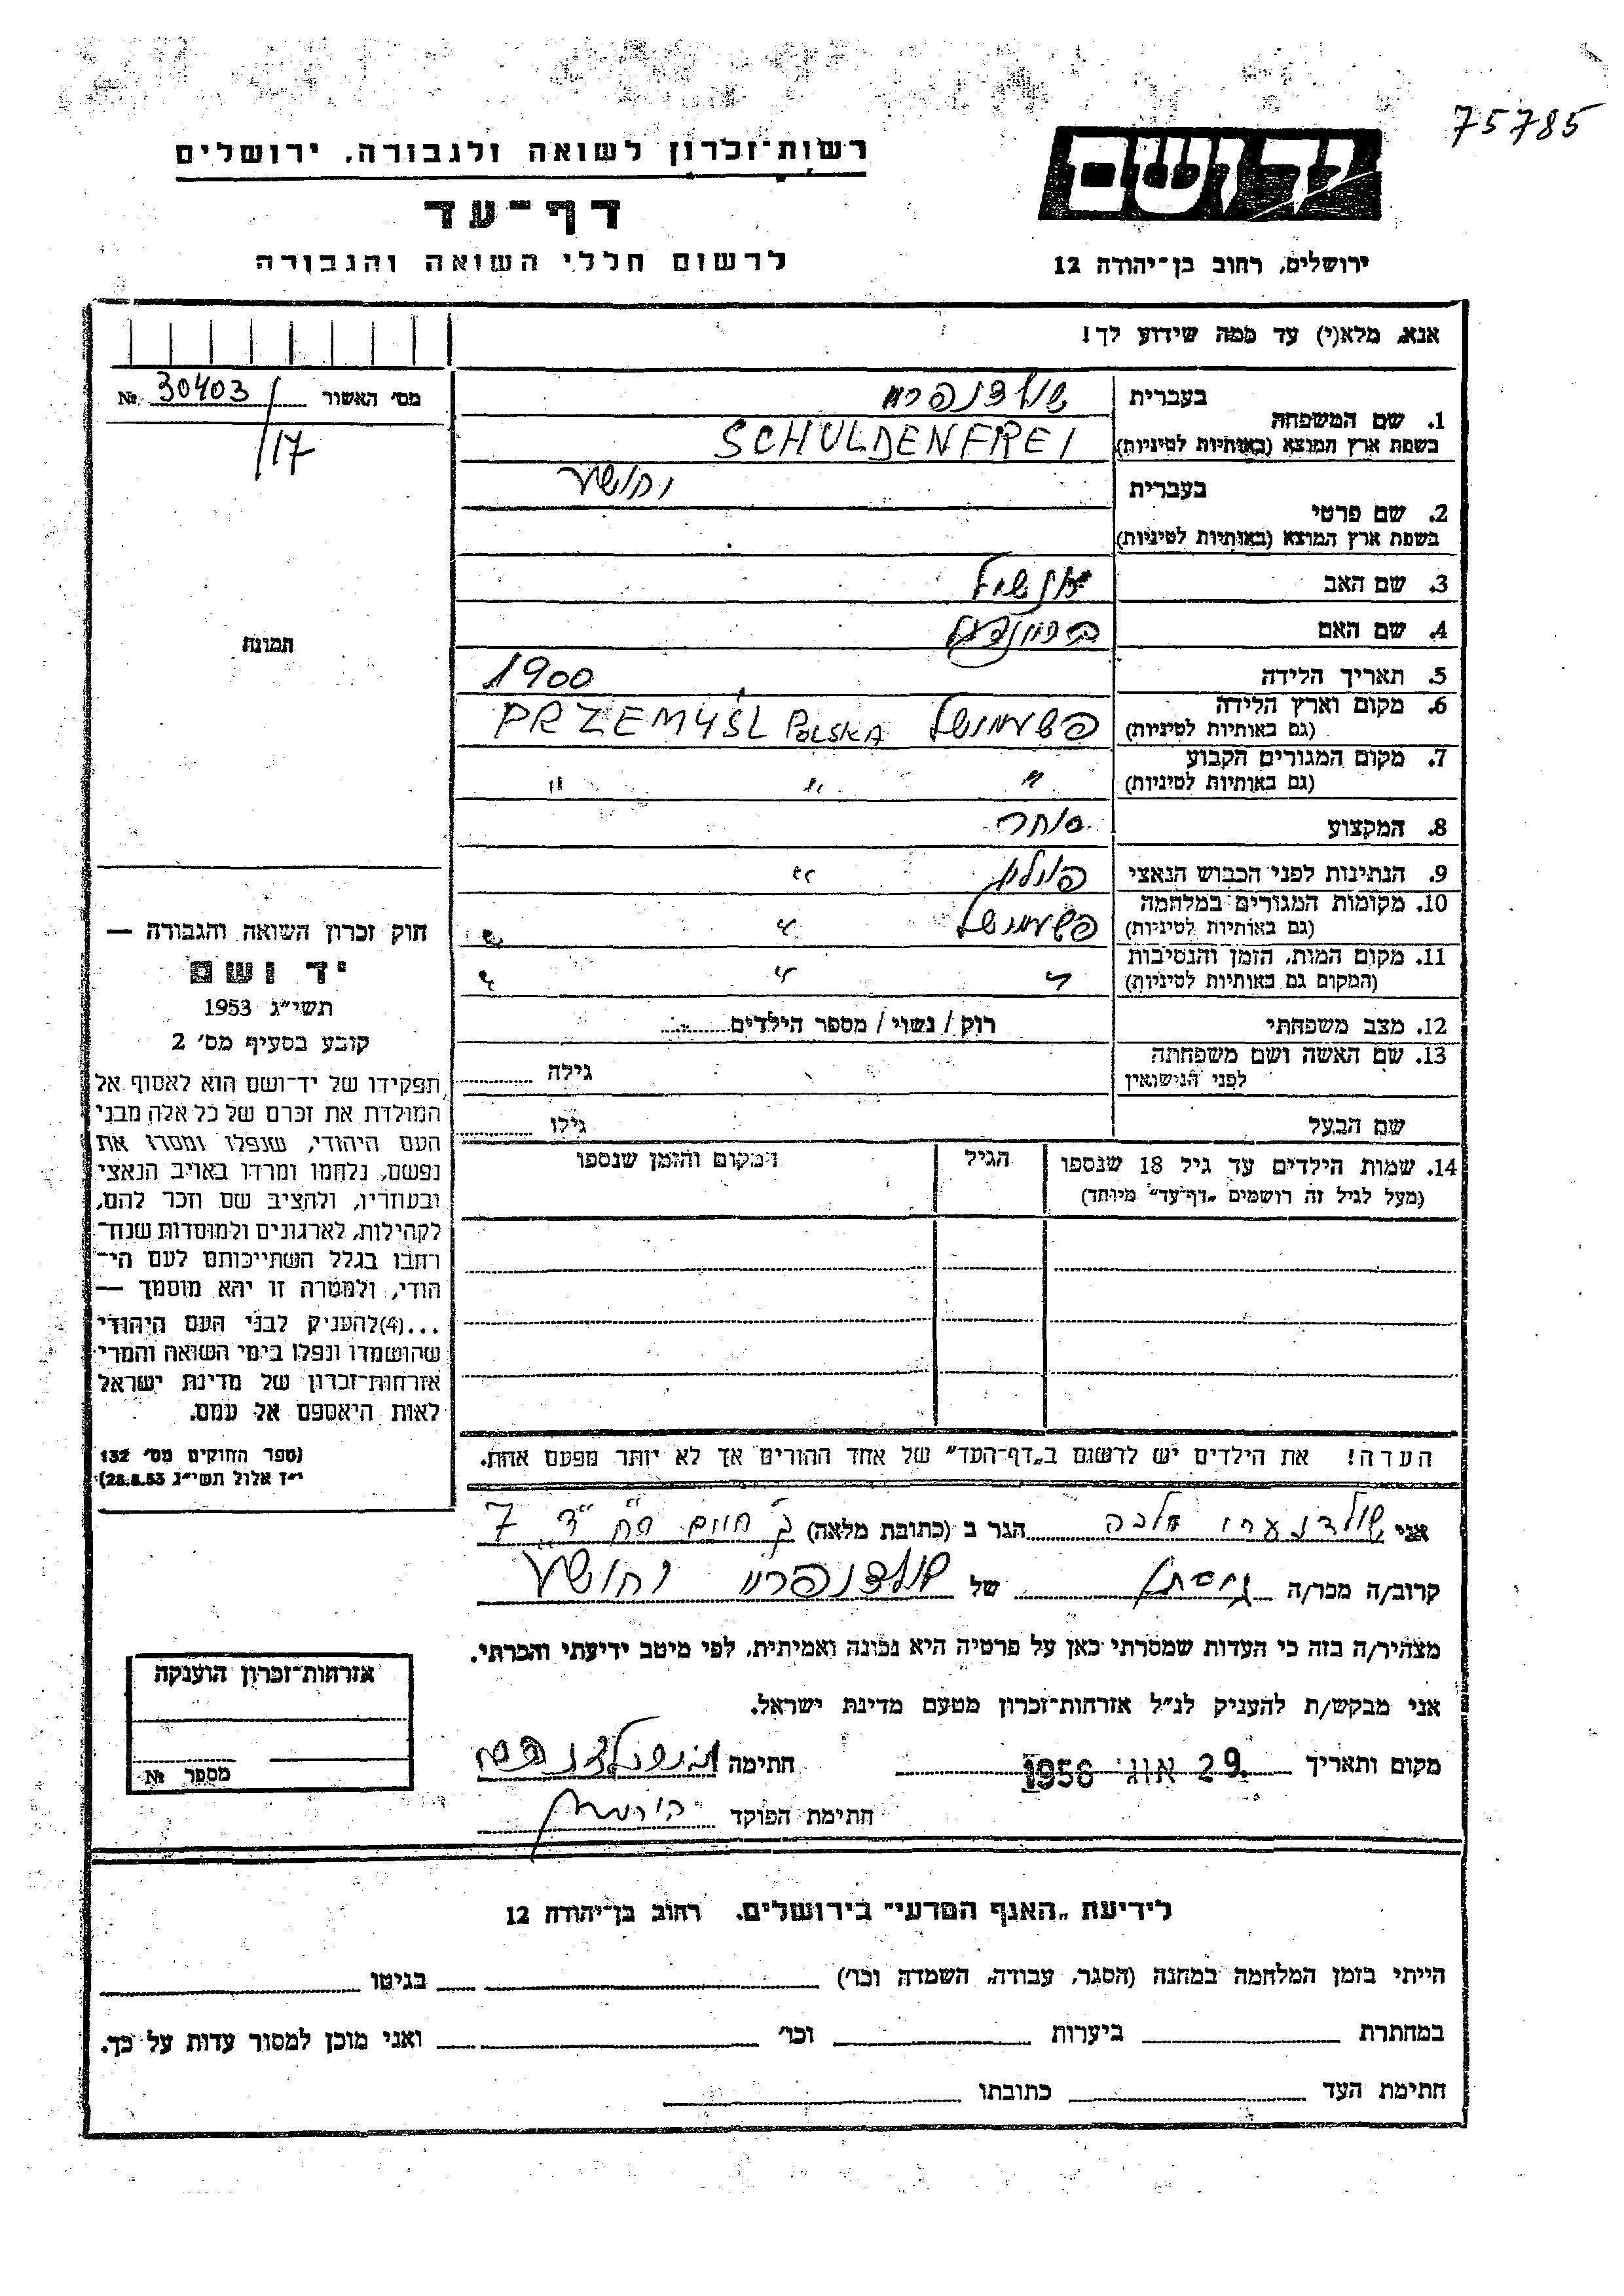 75785
רשות־זכרון לשואה ולגבורה, ירושלים
יד ושם
דף־עד
לרשום חללי השואה והגבורה
ירושלים, רחוב בן־יהודה 12
אנא, מלא(י) עד כמה שידוע לך!
מס׳ האשור № 30403/17
1. שם המשפחה
בעברית שולדנפריי
בשפת ארץ המוצא (באותיות לטיניות) SCHULDENFREI
2. שם פרטי
בעברית יהושע
בשפת ארץ המוצא (באותיות לטיניות)
3. שם האב אנשיל
4. שם האם
תמונה
5. תאריך הלידה 1900
6. מקום וארץ הלידה
(גם באותיות לטיניות) פשעמישל PRZEMYŚL POLSKA
7. מקום המגורים הקבוע
(גם באותיות לטיניות) " " "
8. המקצוע סוחר
9. הנתינות לפני הכבוש הנאצי פולנית "
10. מקומות המגורים במלחמה
(גם באותיות לטיניות) פשעמישל " "
11. מקום המות, הזמן והנסיבות
(המקום גם באותיות לטיניות) " " "
12. מצב משפחתי רוק / נשוי / מספר הילדים
13. שם האשה ושם משפחתה
לפני הנישואין גילה
שם הבעל גילו
14. שמות הילדים עד גיל 18 שנספו הגיל המקום והזמן שנספו
(מעל לגיל זה רושמים „דף־עד" מיוחד)
חוק זכרון השואה והגבורה —
יד ושם
תשי״ג 1953
קובע בסעיף מס׳ 2
תפקידו של יד־ושם הוא לאסוף אל
המולדת את זכרם של כל אלה מבני
העם היהודי, שנפלו ומסרו את
נפשם, נלחמו ומרדו באויב הנאצי
ובעוזריו, ולהציב שם וזכר להם,
לקהילות, לארגונים ולמוסדות שנח־
רבו בגלל השתייכותם לעם הי־
הודי, ולמטרה זו יהא מוסמך —
...(4) להעניק לבני העם היהודי
שהושמדו ונפלו בימי השואה והמרי
אזרחות־זכרון של מדינת ישראל
לאות היאספם אל עמם.
(ספר החוקים מס׳ 132
י״ז אלול תשי״ג 28.8.53)
הערה! את הילדים יש לרשום ב„דף־העד" של אחד ההורים אך לא יותר מפעם אחת.
אני שולדנפריי מלכה הגר ב (כתובת מלאה) 7
קרוב/ה מכר/ה גיסתו של שולדנפריי יהושע
מצהיר/ה בזה כי העדות שמסרתי כאן על פרטיה היא נכונה ואמיתית, לפי מיטב ידיעתי והכרתי.
אני מבקש/ת להעניק לנ״ל אזרחות־זכרון מטעם מדינת ישראל.
מקום ותאריך 29. אוג׳ 1956 חתימה
חתימת הפוקד
אזרחות־זכרון הוענקה
מספר №
לידיעת „האגף המדעי" בירושלים, רחוב בן־יהודה 12
הייתי בזמן המלחמה במחנה (הסגר, עבודה, השמדה וכו׳) בגיטו
במחתרת ביערות וכו׳ ואני מוכן למסור עדות על כך.
חתימת העד כתובתו